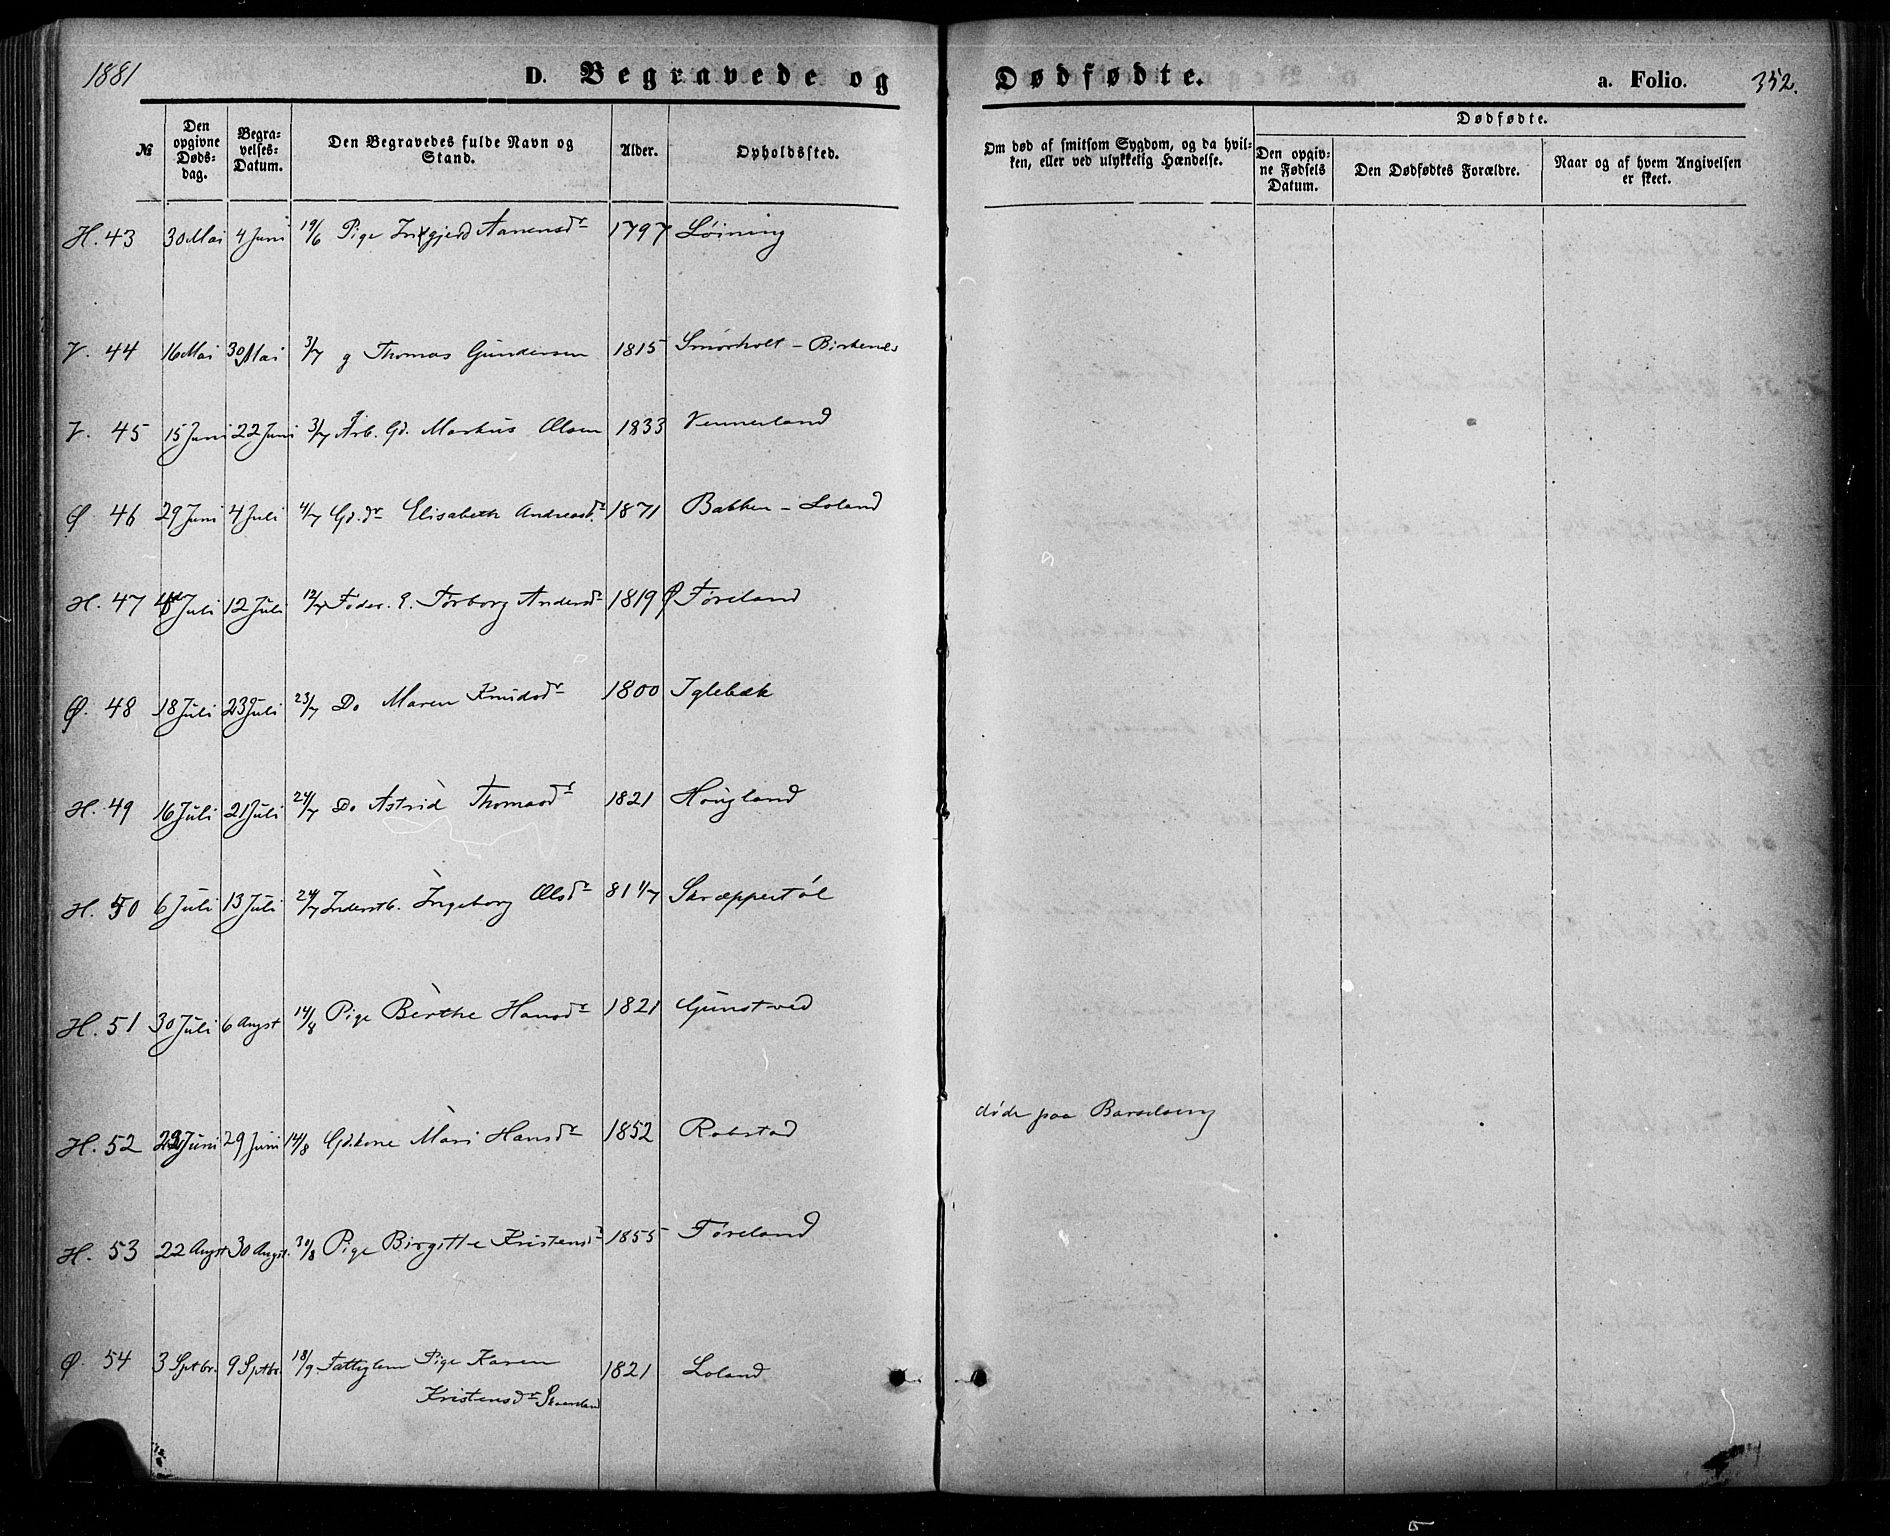 1881
D. Begravede og Dødfødte.
a. Folio. 352.
№
Den opgivne Døds-dag.
Begra-velses-Datum.
Den Begravedes fulde Navn og Stand.
Alder.
Opholdssted.
Om død af smitsom Sygdom, og da hvil-ken, eller ved ulykkelig Hændelse.
Dødfødte.
Den opgiv-ne Fødsels Datum.
Den Dødfødtes Forældre.
Naar og af hvem Angivelsen er skeet.
H. 43 30 Mai 4 Juni 19/6 Pige Ingjerd Aanensdr 1797 Løining
V. 44 16 Mai 30 Mai 3/7 g Thomas Gundersen 1815 Smørholt - Birkenes
V. 45 15 Juni 22 Juni 3/7 Arb. Gd. Markus Olsen 1833 Vennerland
Ø. 46 29 Juni 4 Juli 4/7 Gd.dr Elisabeth Andreasd. 1871 Bakken - Loland
H. 47 Juli 12 Juli 12/7 Føder. E. Tørborg Andersdr 1819 Ø Føreland
Ø. 48 18 Juli 23 Juli 23/7 Do Maren Knudsdr 1800 Iglebæk
H. 49 16 Juli 21 Juli 24/7 Do Astrid Thomasdr 1821 Hougland
H. 50 6 Juli 13 Juli 24/7 Inderstb. Ingeborg Olsdr 81 1/7 Skræppestøl
H. 51 30 Juli 6 Augst 14/8 Pige Berthe Hansdr 1821 Gunstved
H. 52 22 Juni 29 Juni 14/8 Gdkone Mari Hansdr 1852 Robstad døde paa Barselseng
H. 53 22 Augst 30 Augst. 30/8 Pige Birgitte Kristensdr 1855 Føreland
Ø. 54 3 Sptbr. 9 Sptbr. 18/9 Fattiglem Pige Karen 1821 Loland
Kristensdr Skaarland